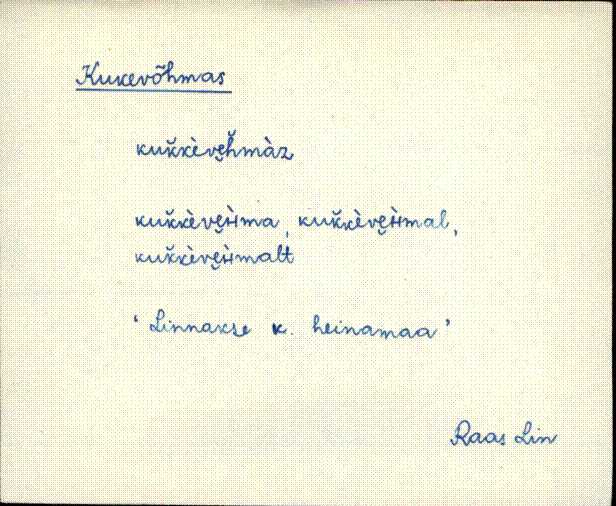 Kukevõhmas
kuk̆kève̮h̆màz
kuk̆kève̮h̀ma, kuk̆kève̮h̀mal,
kuk̆kève̮h̀malt
‘Linnakse k. heinamaa’
Raas Lin